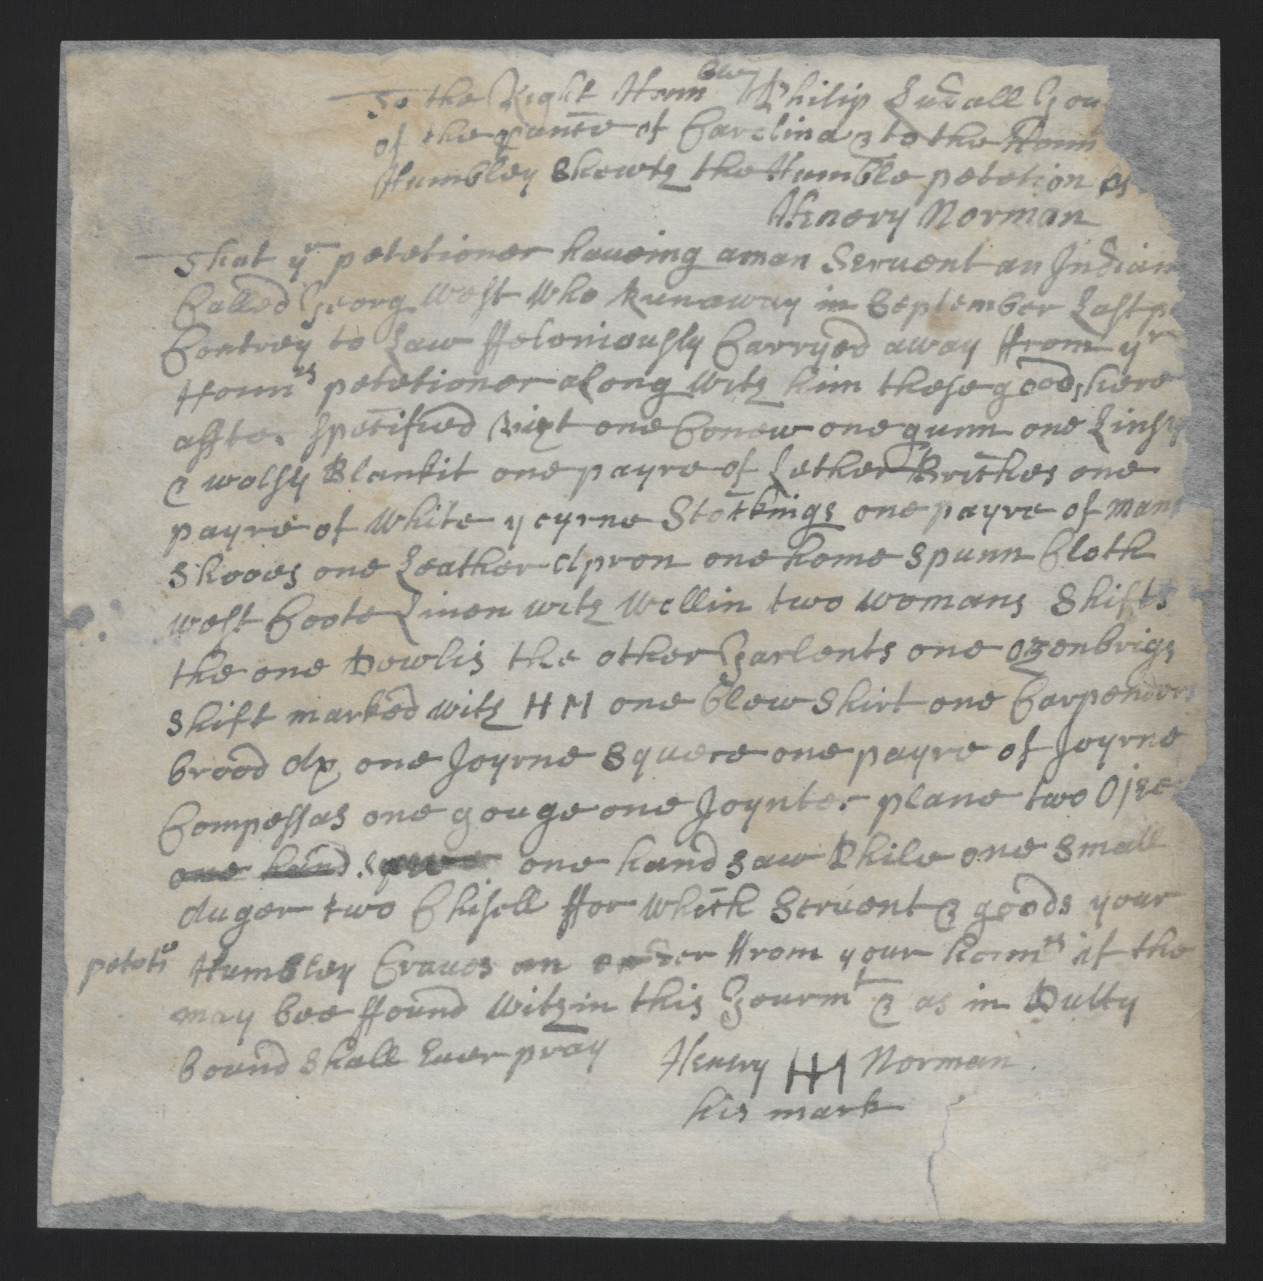 To the Right Honn ble Philip Ludall Gou
of the povince of Carolina & to the Honn
Humbley Shewth the Humble petetion of
Henery Norman
That yr petetioner haueing a man Seruent an Indian
Called Georg West Who Runaway in September Last
Contrey to Law ffeloniously Carryed away ffrom yr
Honnrs petetioner along With him these goods here
affter spetified vizt one Conew one gunn one Linsy
& wolsy Blankit one payre of Lether Britches one
payre of White yeyrne Stotkings one payre of mans
Shooes one Leather Apron one home Spunn Cloth
West Coote Linen with Wollin two womans Shifts
the one Dowlis the other Garlents one Ozenbrigs
Shift marked with HM one blew Shirt one Carpenders
brood Ax one Joyrne Squere one payre of Joyrne
Compessas one gouge one Joynter plane two
one hand one hand saw Phile one Small
Auger two Chisell ffor which Seruent & goods your
petetr Humbley Craues an order ffrom your honnrs if the
may bee ffound Within this Gourmt & as in Dutty
bound Shall Euer pray Henery HM Norman
his mark